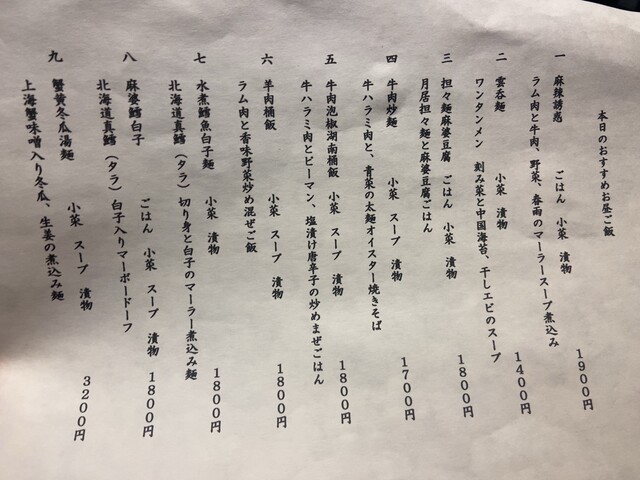 本日のおすすめお昼ご飯
一 麻辣誘惑 ごはん 小菜 漬物 1900円
ラム肉と牛肉、野菜、春雨のマーラースープ煮込み
二 雲呑麺 小菜 漬物 1400円
ワンタンメン 刻み菜と中国海苔、干しエビのスープ
三 担々麺麻婆豆腐 ごはん 小菜 漬物 1800円
月居担々麺と麻婆豆腐ごはん
四 牛肉炒麺 小菜 スープ 漬物 1700円
牛ハラミ肉と、青菜の太麺オイスター焼きそば
五 牛肉泡椒湖南桶飯 小菜 スープ 漬物 1800円
牛ハラミ肉とピーマン、塩漬け唐辛子の炒めまぜごはん
六 羊肉桶飯 小菜 スープ 漬物 1800円
ラム肉と香味野菜炒め混ぜご飯
七 水煮鱈魚白子麺 小菜 漬物 1800円
北海道真鱈(タラ)切り身と白子のマーラー煮込み麺
八 麻婆鱈白子 ごはん 小菜 スープ 漬物 1800円
北海道真鱈(タラ)白子入りマーボードーフ
九 蟹黄冬瓜湯麺 小菜 スープ 漬物 3200円
上海蟹味噌入り冬瓜、生姜の煮込み麺